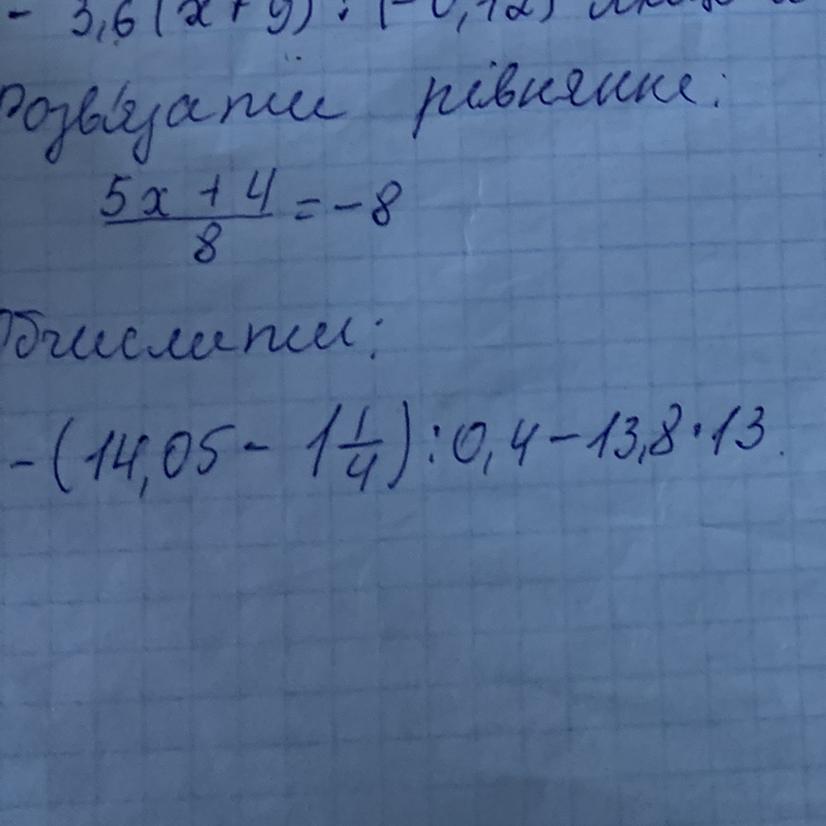 - 3,6(x+y) : (-0,12)
Розв'язати рівняння:
5x + 4
/8 = -8
Обчислити:
-(14,05 - 1 1/4) : 0,4 - 13,8 · 13.